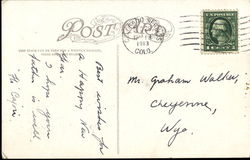 POST CARD
1913
COLO.
Best wishes for
a Happy New
Year.
I hope your
father is well.
Mr. Graham Walker,
Cheyenne,
Wyo.